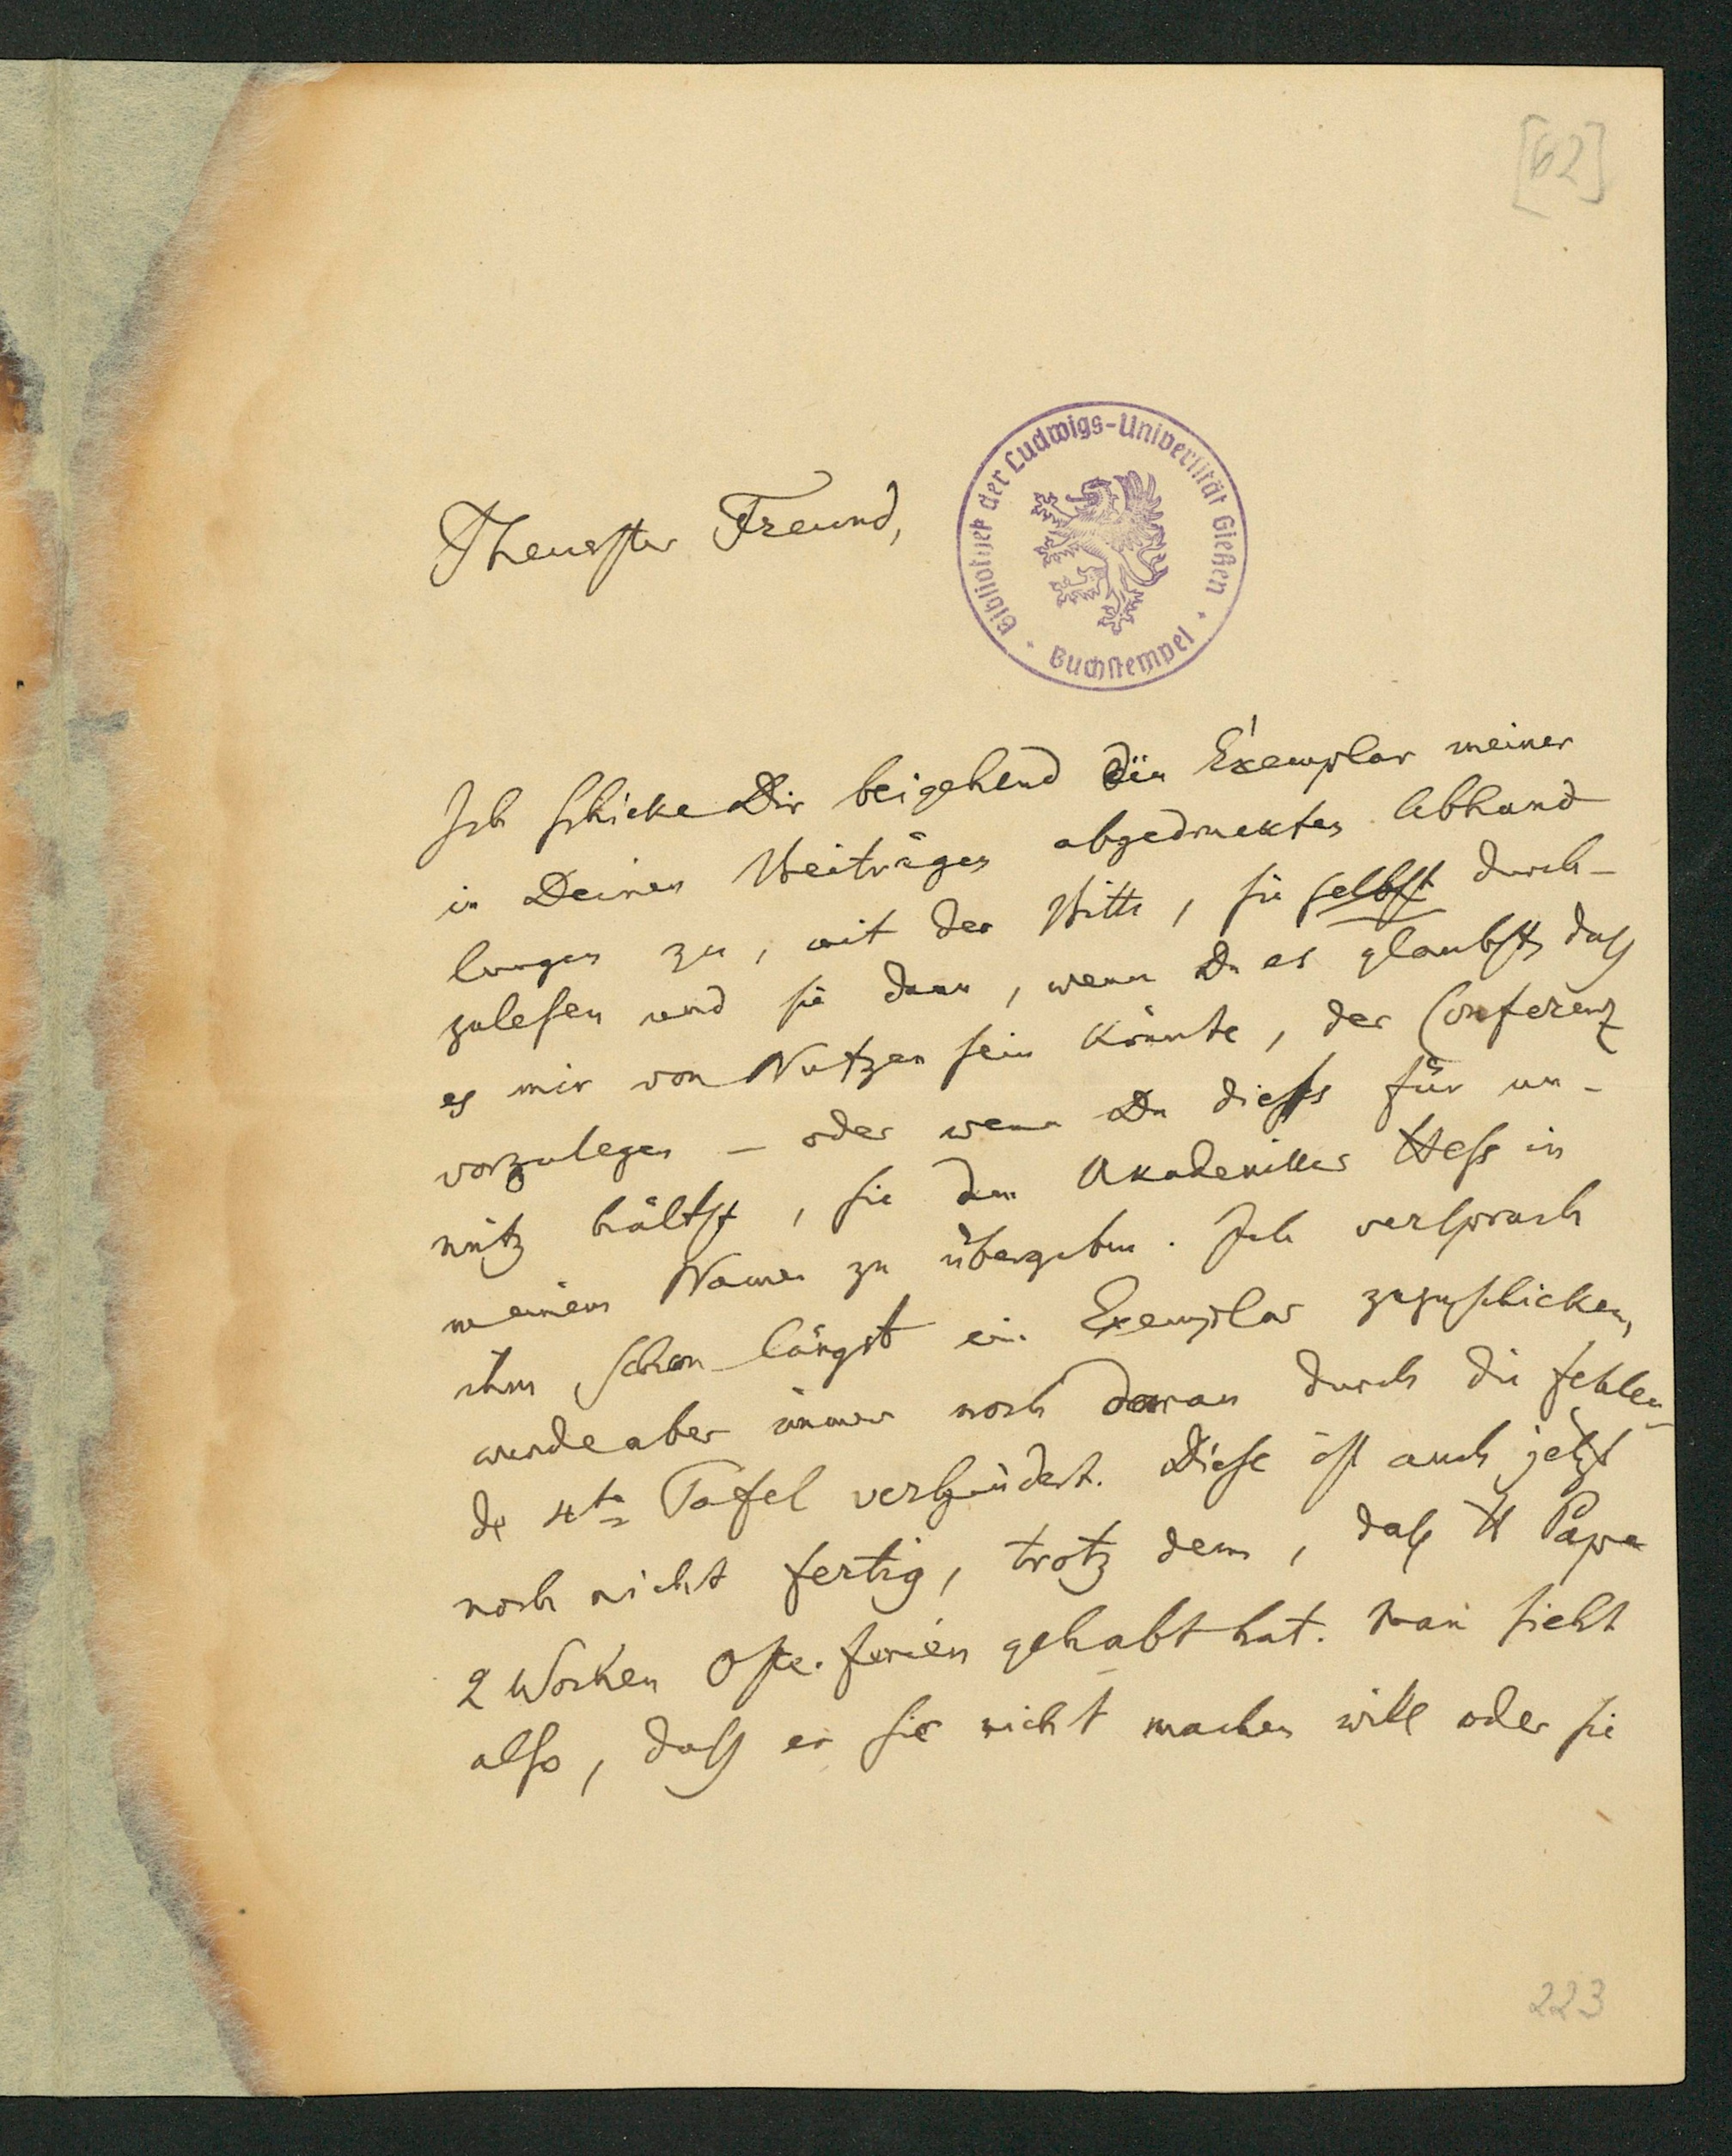 [62]
Theuerster Freund,
Bibliothek der Ludwigs-Universität Gießen
Buchstempel
Ich schicke Dir beigehend ein Exemplar meiner
in Deinen Beiträgen abgedruckten Abhand
lungen zu, mit der Bitte, sie selbst durch-
zulesen und sie dann, wenn Du es glaubst, daß
es mir von Nutzen sein könnte, der Conferenz
vorzulegen – oder wenn Du dieß für un-
nütz hältst, sie dem Akademiker Hess in
meinem Namen zu übergeben. Ich versprach
ihm schon längst ein Exemplar zuzuschicken,
wurde aber immer noch daran durch die fehlen-
de 4te Tafel verhindert. Diese ist auch jetzt
noch nicht fertig, trotz dem, daß H Pape
2 Wochen Osterferien gehabt hat. Man sieht
also, daß er sie nicht machen will oder sie
223